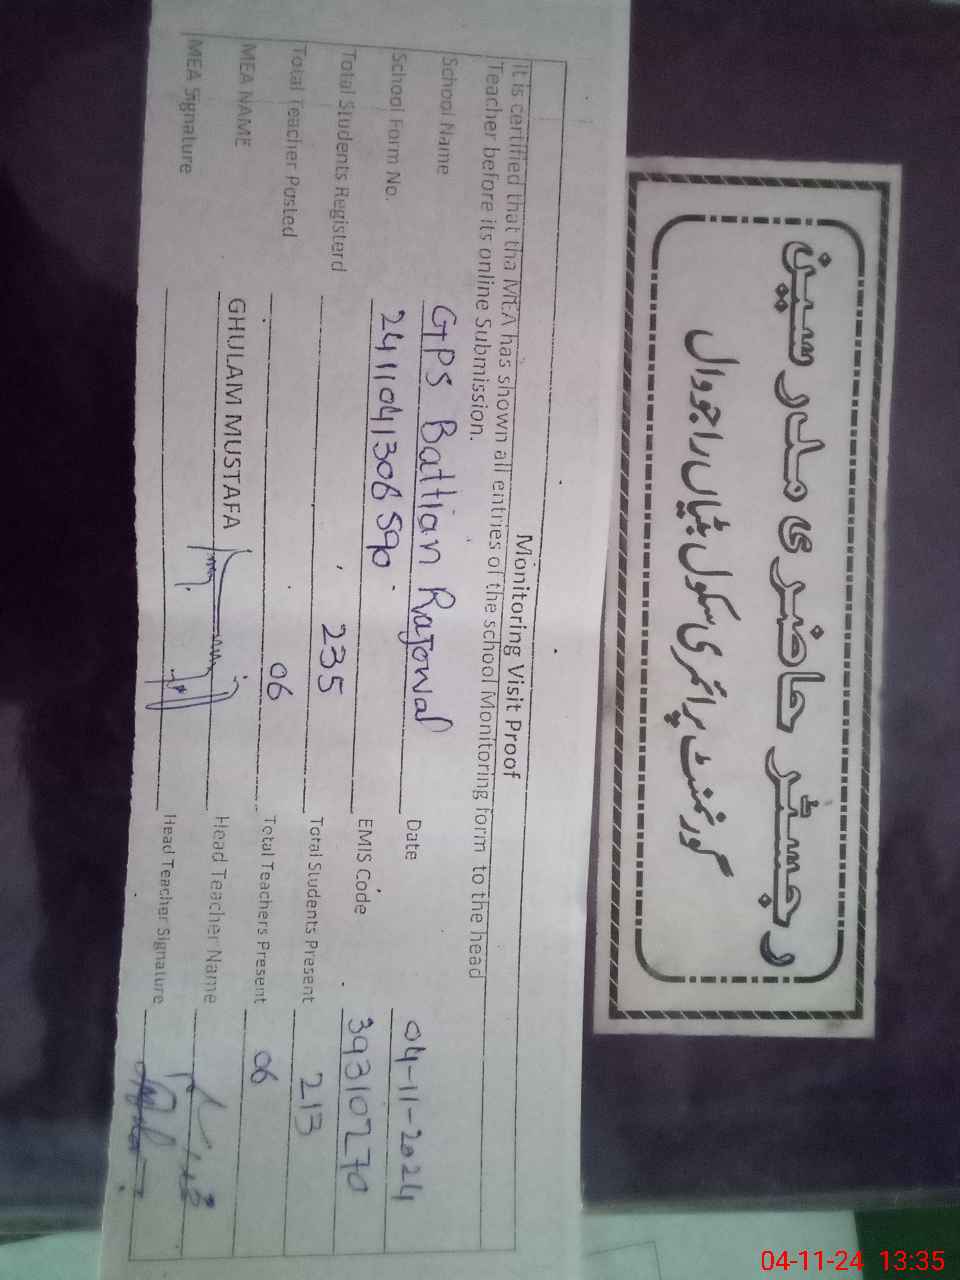 رجسٹر حاضری مدرسین
گورنمنٹ پرائمری سکول بٹیاں راجووال
Monitoring Visit Proof
It is certified that tha MEA has shown all entries of the school Monitoring form to the head
Teacher before its online Submission.
School Name GPS Battian Rajowal Date 04-11-2024
School Form No. 2411041306590 EMIS Code 39310270
Total Students Registerd 235 Total Students Present 213
Total Teacher Posted 06 Total Teachers Present 06
MEA NAME GHULAM MUSTAFA Head Teacher Name
MEA Signature Head Teacher Signature
04-11-24 13:35